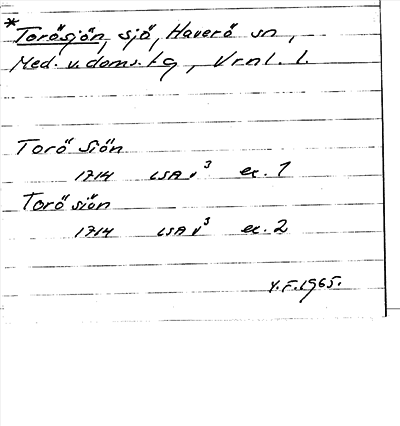 * Torösjön, sjö, Haverö sn,
Med. v. doms. tg, Vrnl. l.
Torö Siön
1714 LSA v³ ex. 1
Torö siön
1714 LSA v³ ex. 2
V.F. 1965.